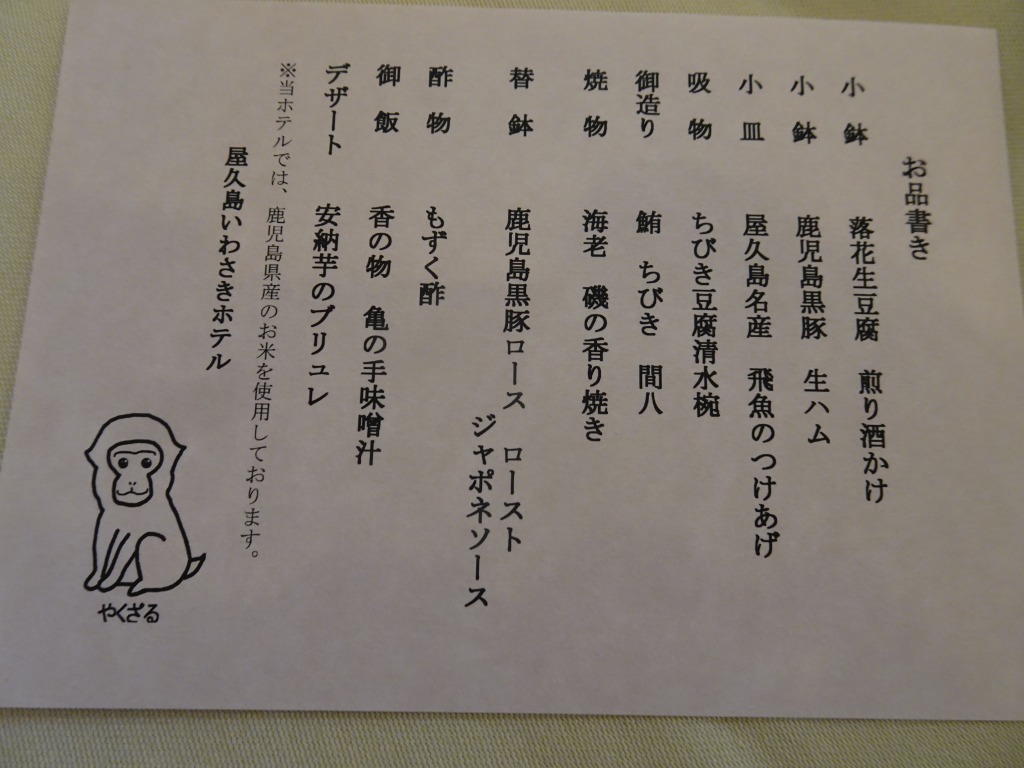 お品書き
小鉢 落花生豆腐 煎り酒かけ
小鉢 鹿児島黒豚 生ハム
小皿 屋久島名産 飛魚のつけあげ
吸物 ちびき豆腐清水椀
御造り 鮪 ちびき 間八
焼物 海老 磯の香り焼き
替鉢 鹿児島黒豚ロース ロースト
ジャポネソース
酢物 もずく酢
御飯 香の物 亀の手味噌汁
デザート 安納芋のブリュレ
※当ホテルでは、鹿児島県産のお米を使用しております。
屋久島いわさきホテル
やくざる